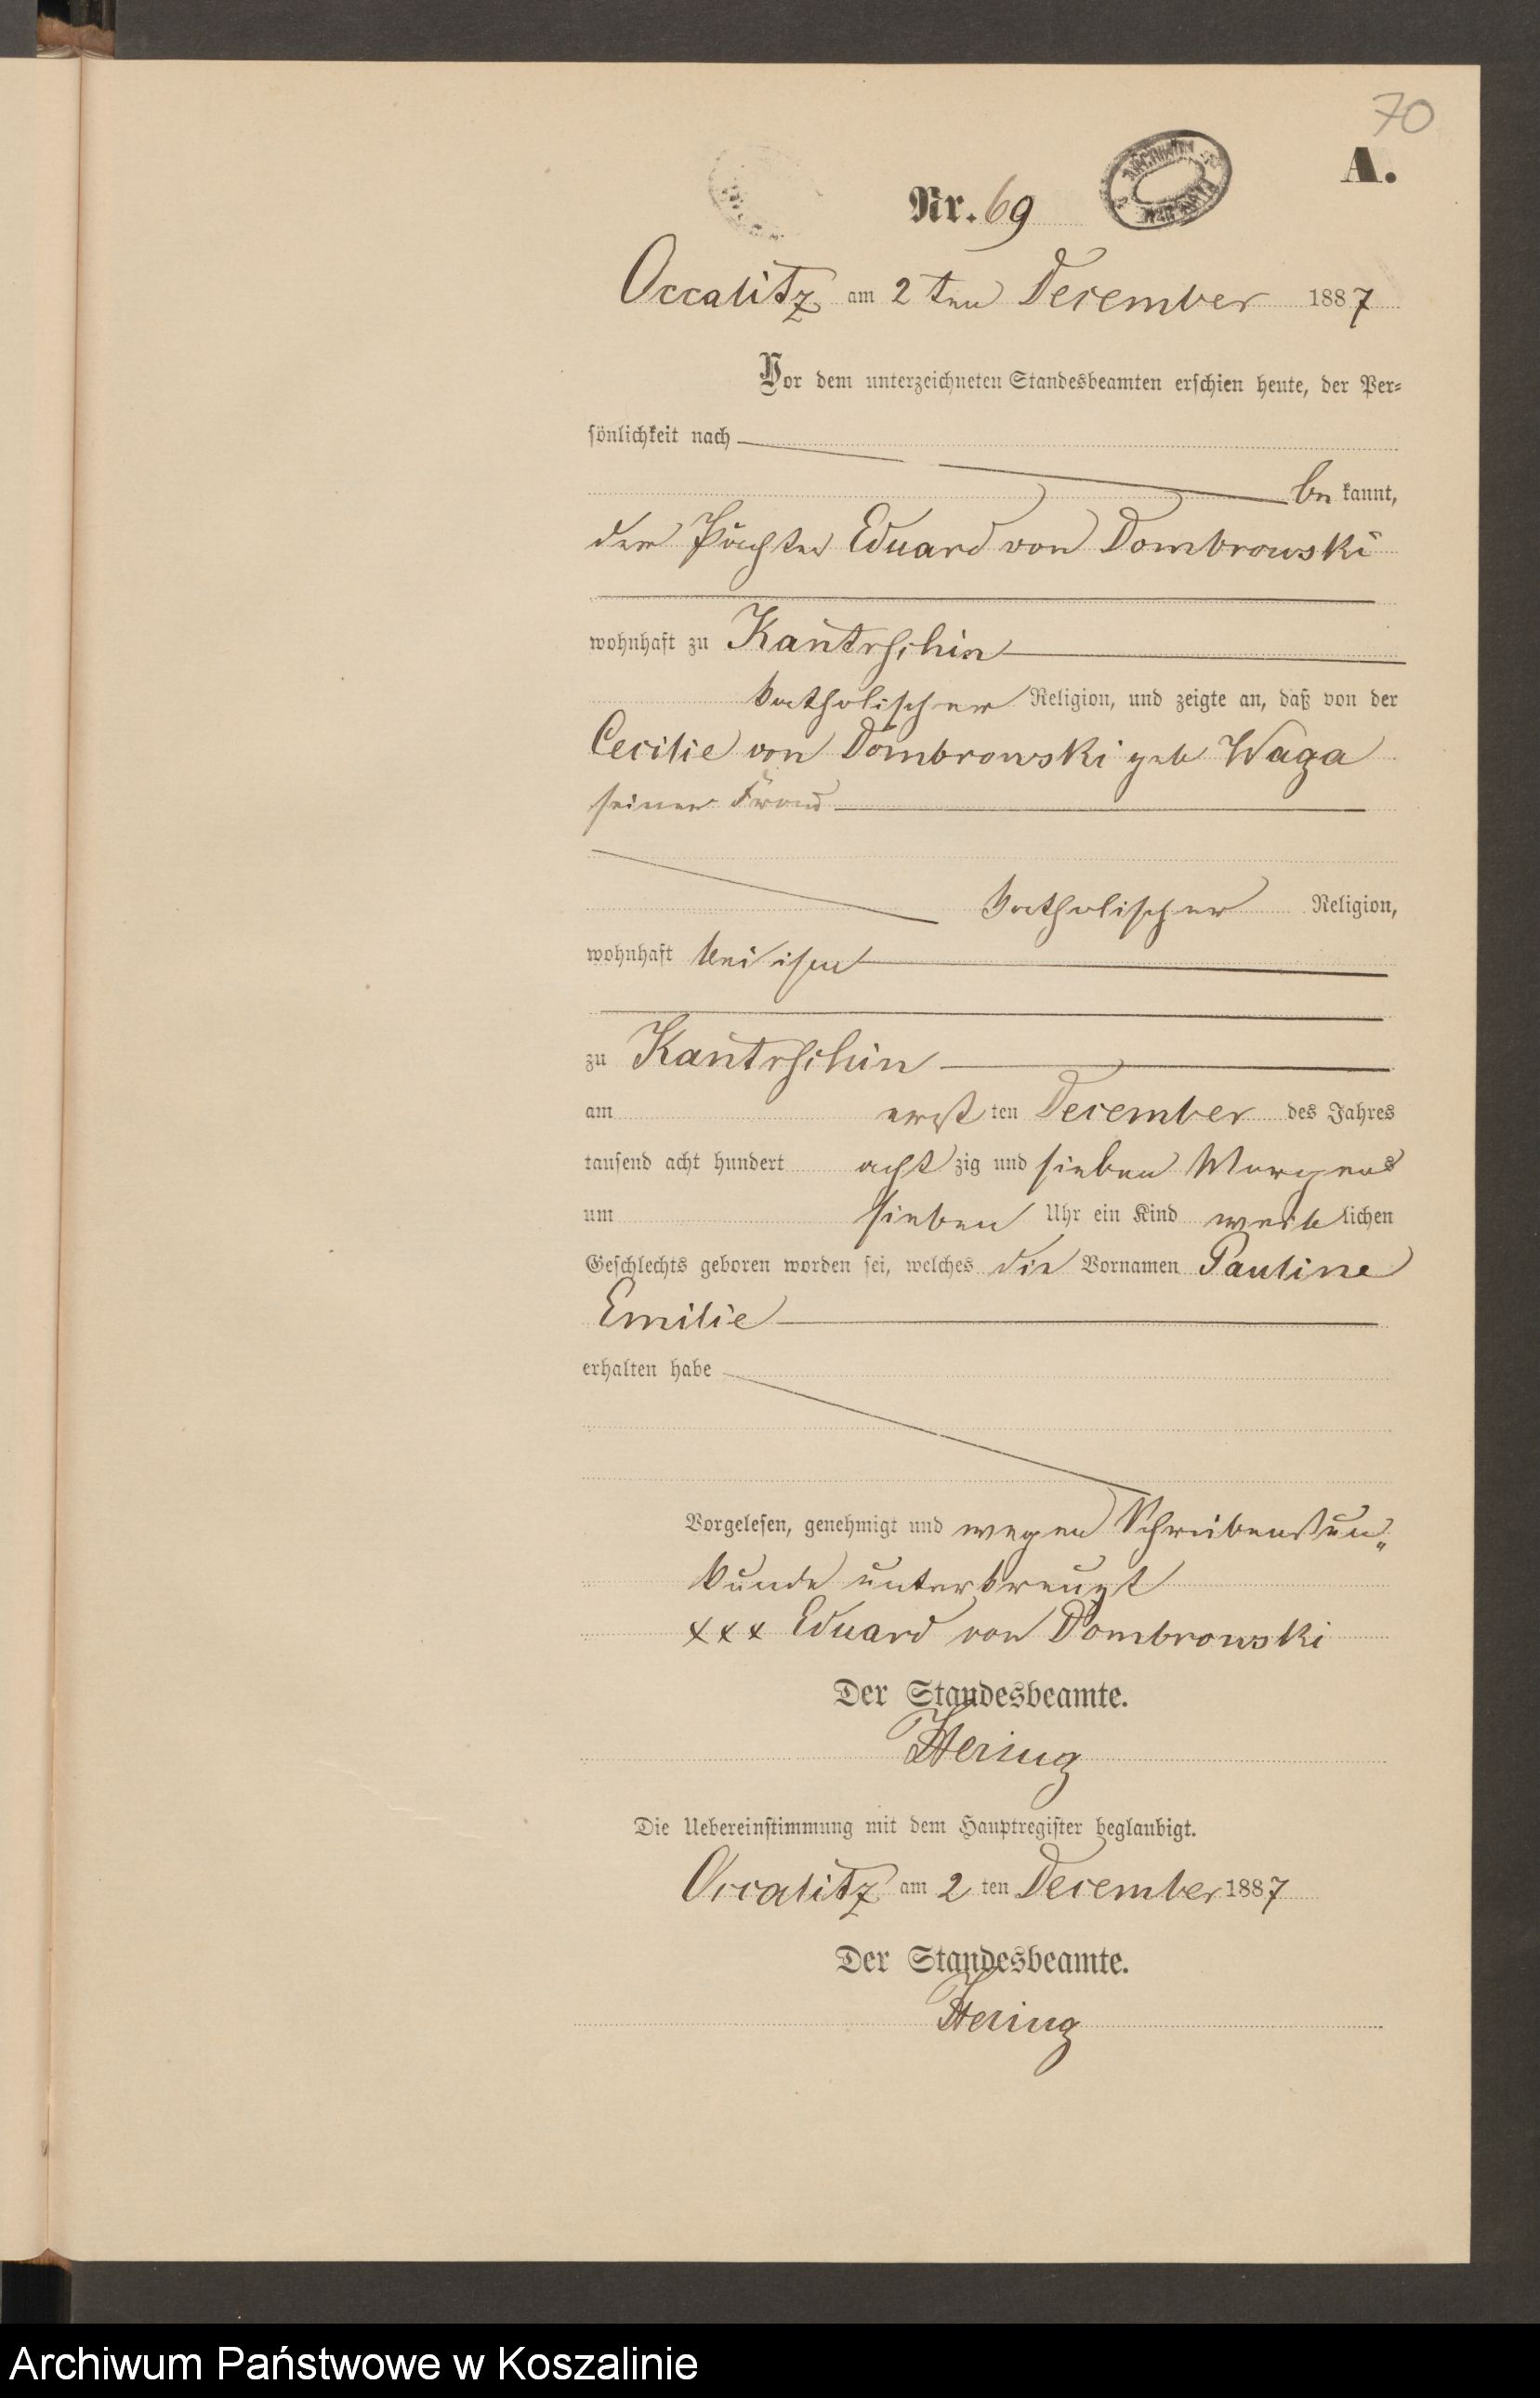 70
A.
Nr. 69
Occalitz am 2 ten December 1887
Vor dem unterzeichneten Standesbeamten erschien heute, der Per-
sönlichkeit nach
be kannt,
der Pächter Eduard von Dombrowski
wohnhaft zu Kantrschin
katholischer Religion, und zeigte an, daß von der
Cecilie von Dombrowski geb Waga
seiner Frau
katholischer Religion,
wohnhaft bei ihm
zu Kantrschin
am ersten December des Jahres
tausend acht hundert acht zig und sieben Morgens
um sieben Uhr ein Kind weiblichen
Geschlechts geboren worden sei, welches die Vornamen Pauline
Emilie
erhalten habe
Vorgelesen, genehmigt und wegen Schreibensun„
kunde unterkreuzt
xxx Eduard von Dombrowski
Der Standesbeamte.
Hering
Die Uebereinstimmung mit dem Hauptregister beglaubigt.
Occalitz am 2 ten December 1887
Der Standesbeamte.
Hering
Archiwum Państwowe w Koszalinie